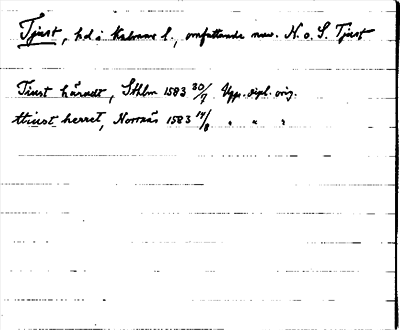 Tjust, hd i Kalmar l., omfattande nuv. N. o. S. Tjust
Tiust häradt, Sthlm 1583 30/7 Upp. dipl. orig.
ttiust herret, Norrnäs 1583 14/8 " " "